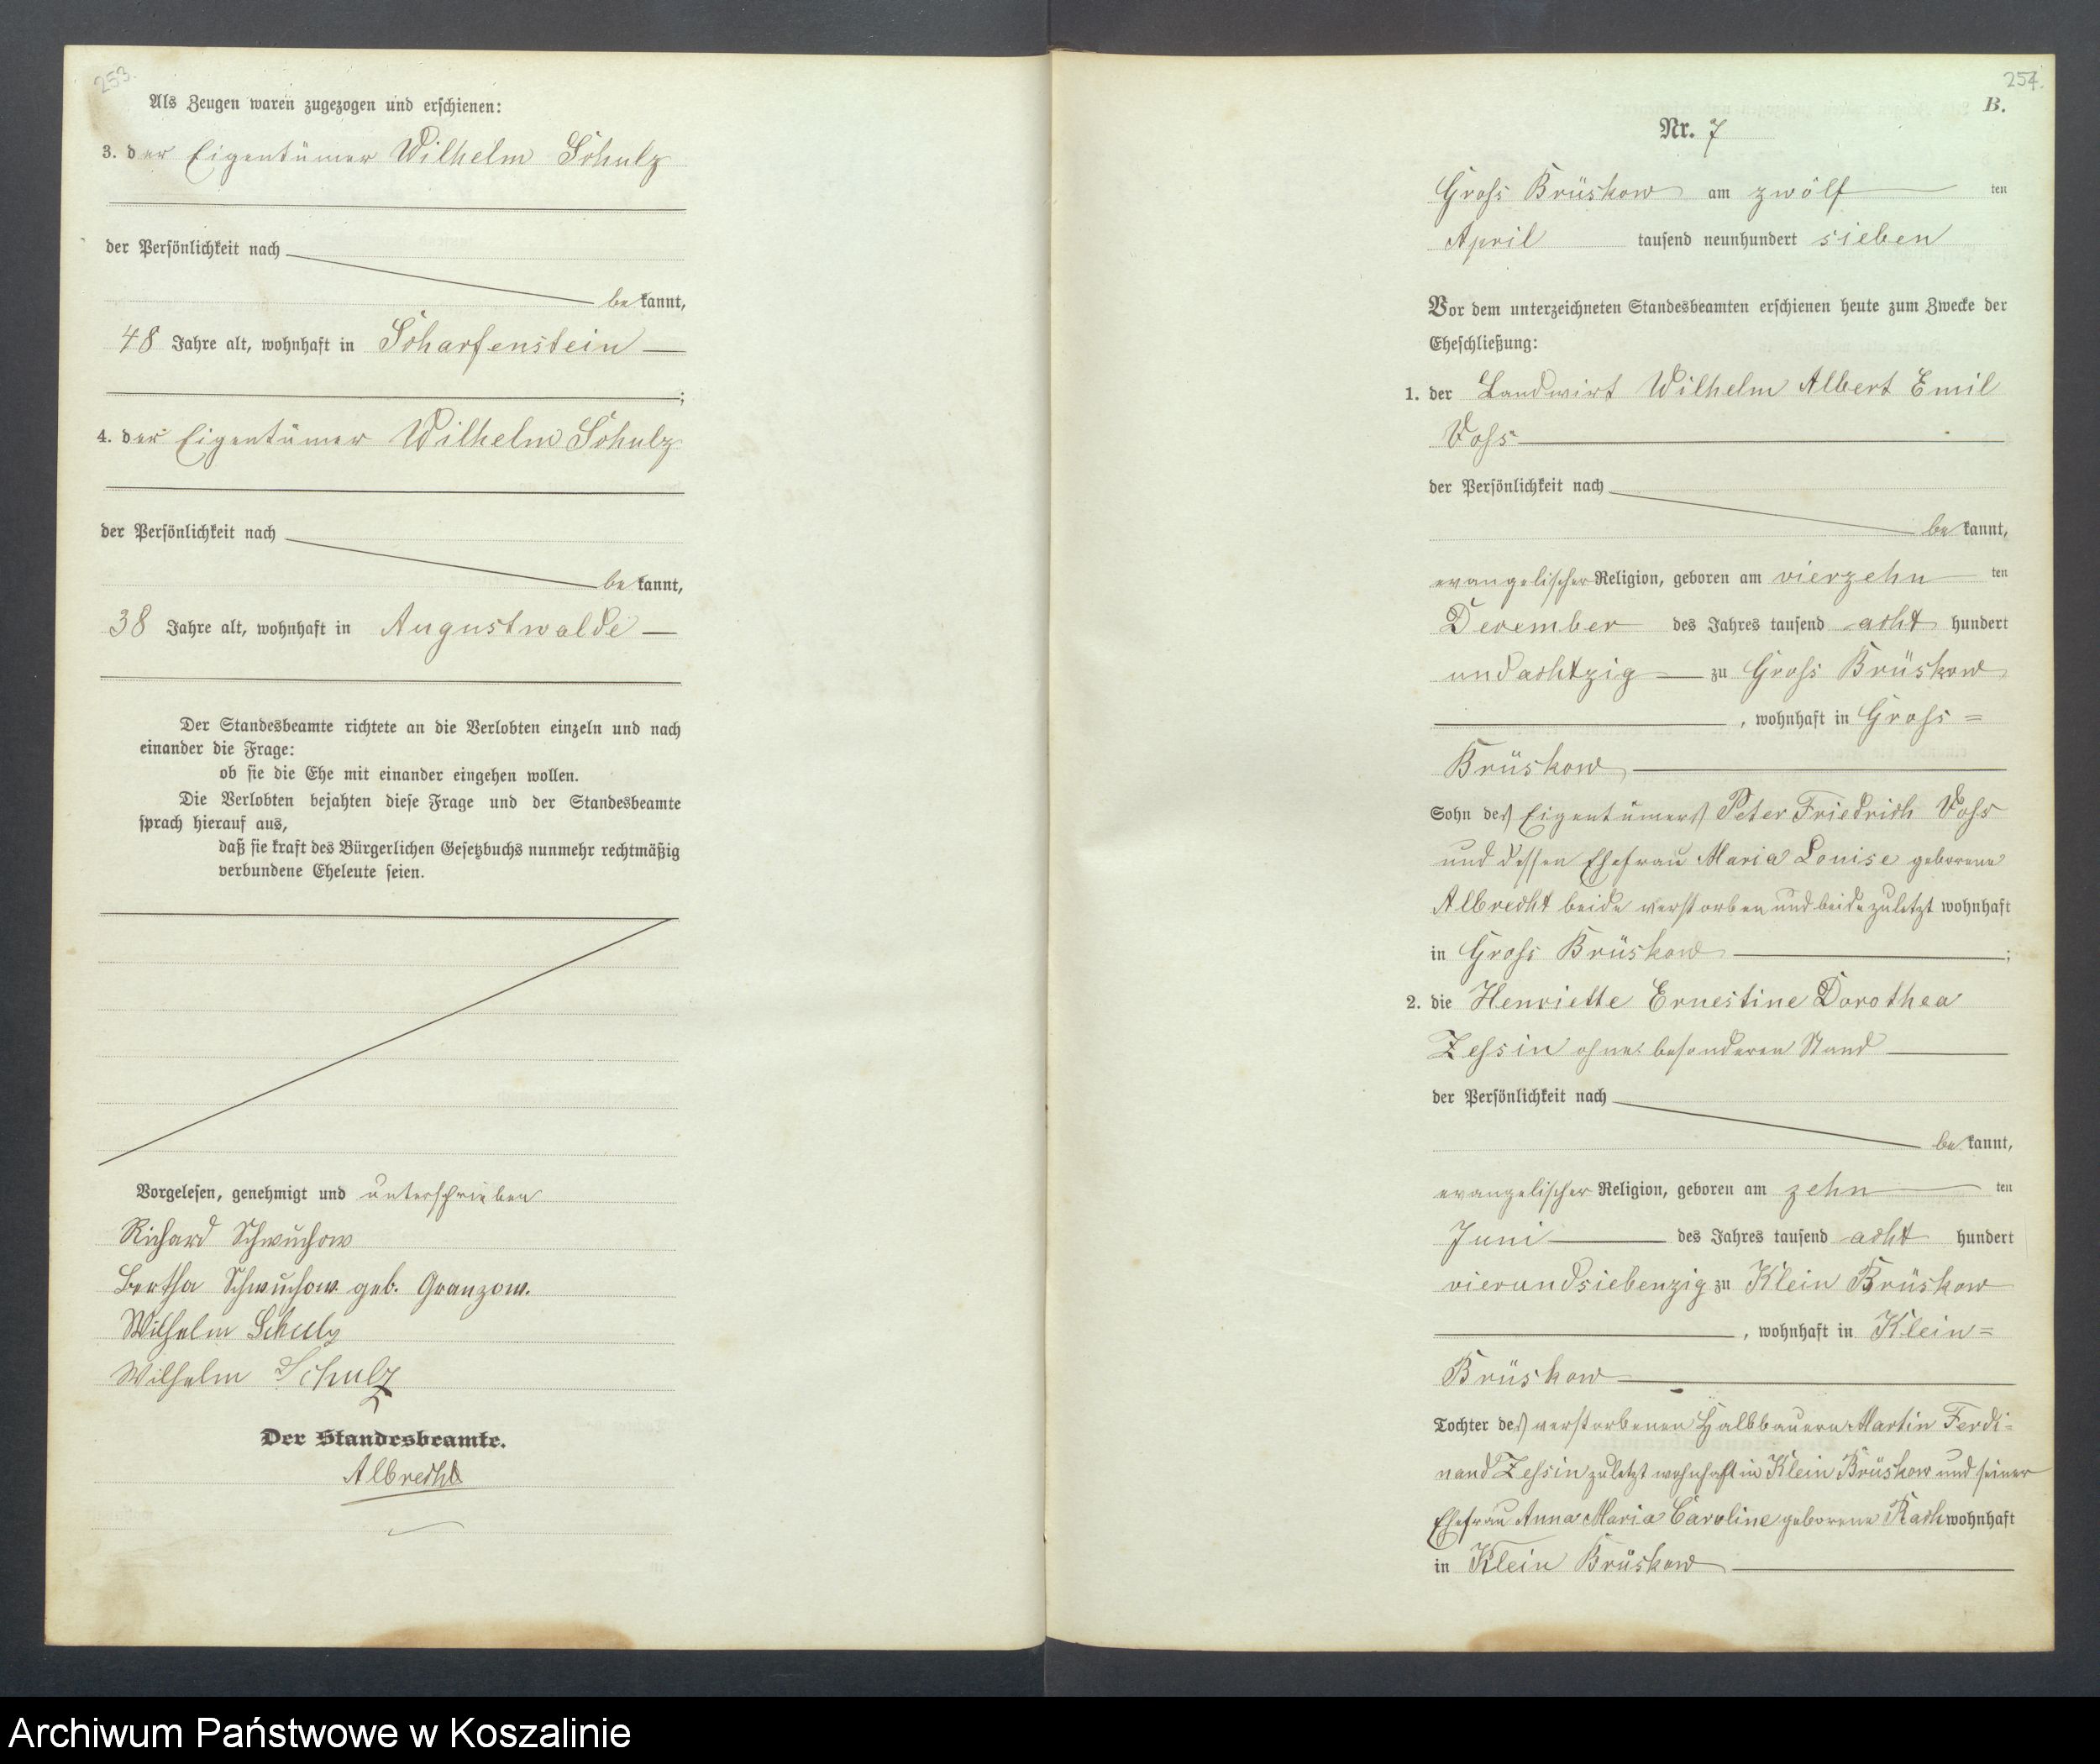 253.
Als Zeugen waren zugezogen und erschienen:
3. der Eigentümer Wilhelm Schulz
der Persönlichkeit nach
bekannt,
48 Jahre alt, wohnhaft in Scharfenstein
;
4. der Eigentümer Wilhelm Schulz
der Persönlichkeit nach
bekannt,
38 Jahre alt, wohnhaft in Augustwalde
Der Standesbeamte richtete an die Verlobten einzeln und nach
einander die Frage:
ob sie die Ehe mit einander eingehen wollen.
Die Verlobten bejahten diese Frage und der Standesbeamte
sprach hierauf aus,
daß sie kraft des Bürgerlichen Gesetzbuchs nunmehr rechtmäßig
verbundene Eheleute seien.
Vorgelesen, genehmigt und unterschrieben
Richard Schwuchow
Bertha Schwuchow geb. Granzow.
Wilhelm Schulz
Wilhelm Schulz
Der Standesbeamte.
Albrecht
254.
B.
Nr. 7
Gross Brüskow am zwölf ten
April tausend neunhundert sieben
Vor dem unterzeichneten Standesbeamten erschienen heute zum Zwecke der
Eheschließung:
1. der Landwirt Wilhelm Albert Emil
Voss
der Persönlichkeit nach
bekannt,
evangelischer Religion, geboren am vierzehn ten
Dezember des Jahres tausend acht hundert
und achtzig zu Gross Brüskow
, wohnhaft in Gross=
Brüskow
Sohn des Eigentümers Peter Friedrich Voss
und dessen Ehefrau Maria Louise geborene
Albrecht beide verstorben und beide zuletzt wohnhaft
in Gross Brüskow ;
2. die Henriette Ernestine Dorothea
Zessin ohne besonderen Stand
der Persönlichkeit nach
bekannt,
evangelischer Religion, geboren am zehn ten
Juni des Jahres tausend acht hundert
vierundsiebenzig zu Klein Brüskow
, wohnhaft in Klein=
Brüskow
Tochter des verstorbenen Halbbauern Martin Ferdi=
nand Zessin zuletzt wohnhaft in Klein Brüskow und seiner
Ehefrau Anna Maria Caroline geborene Rach wohnhaft
in Klein Brüskow
Archiwum Państwowe w Koszalinie